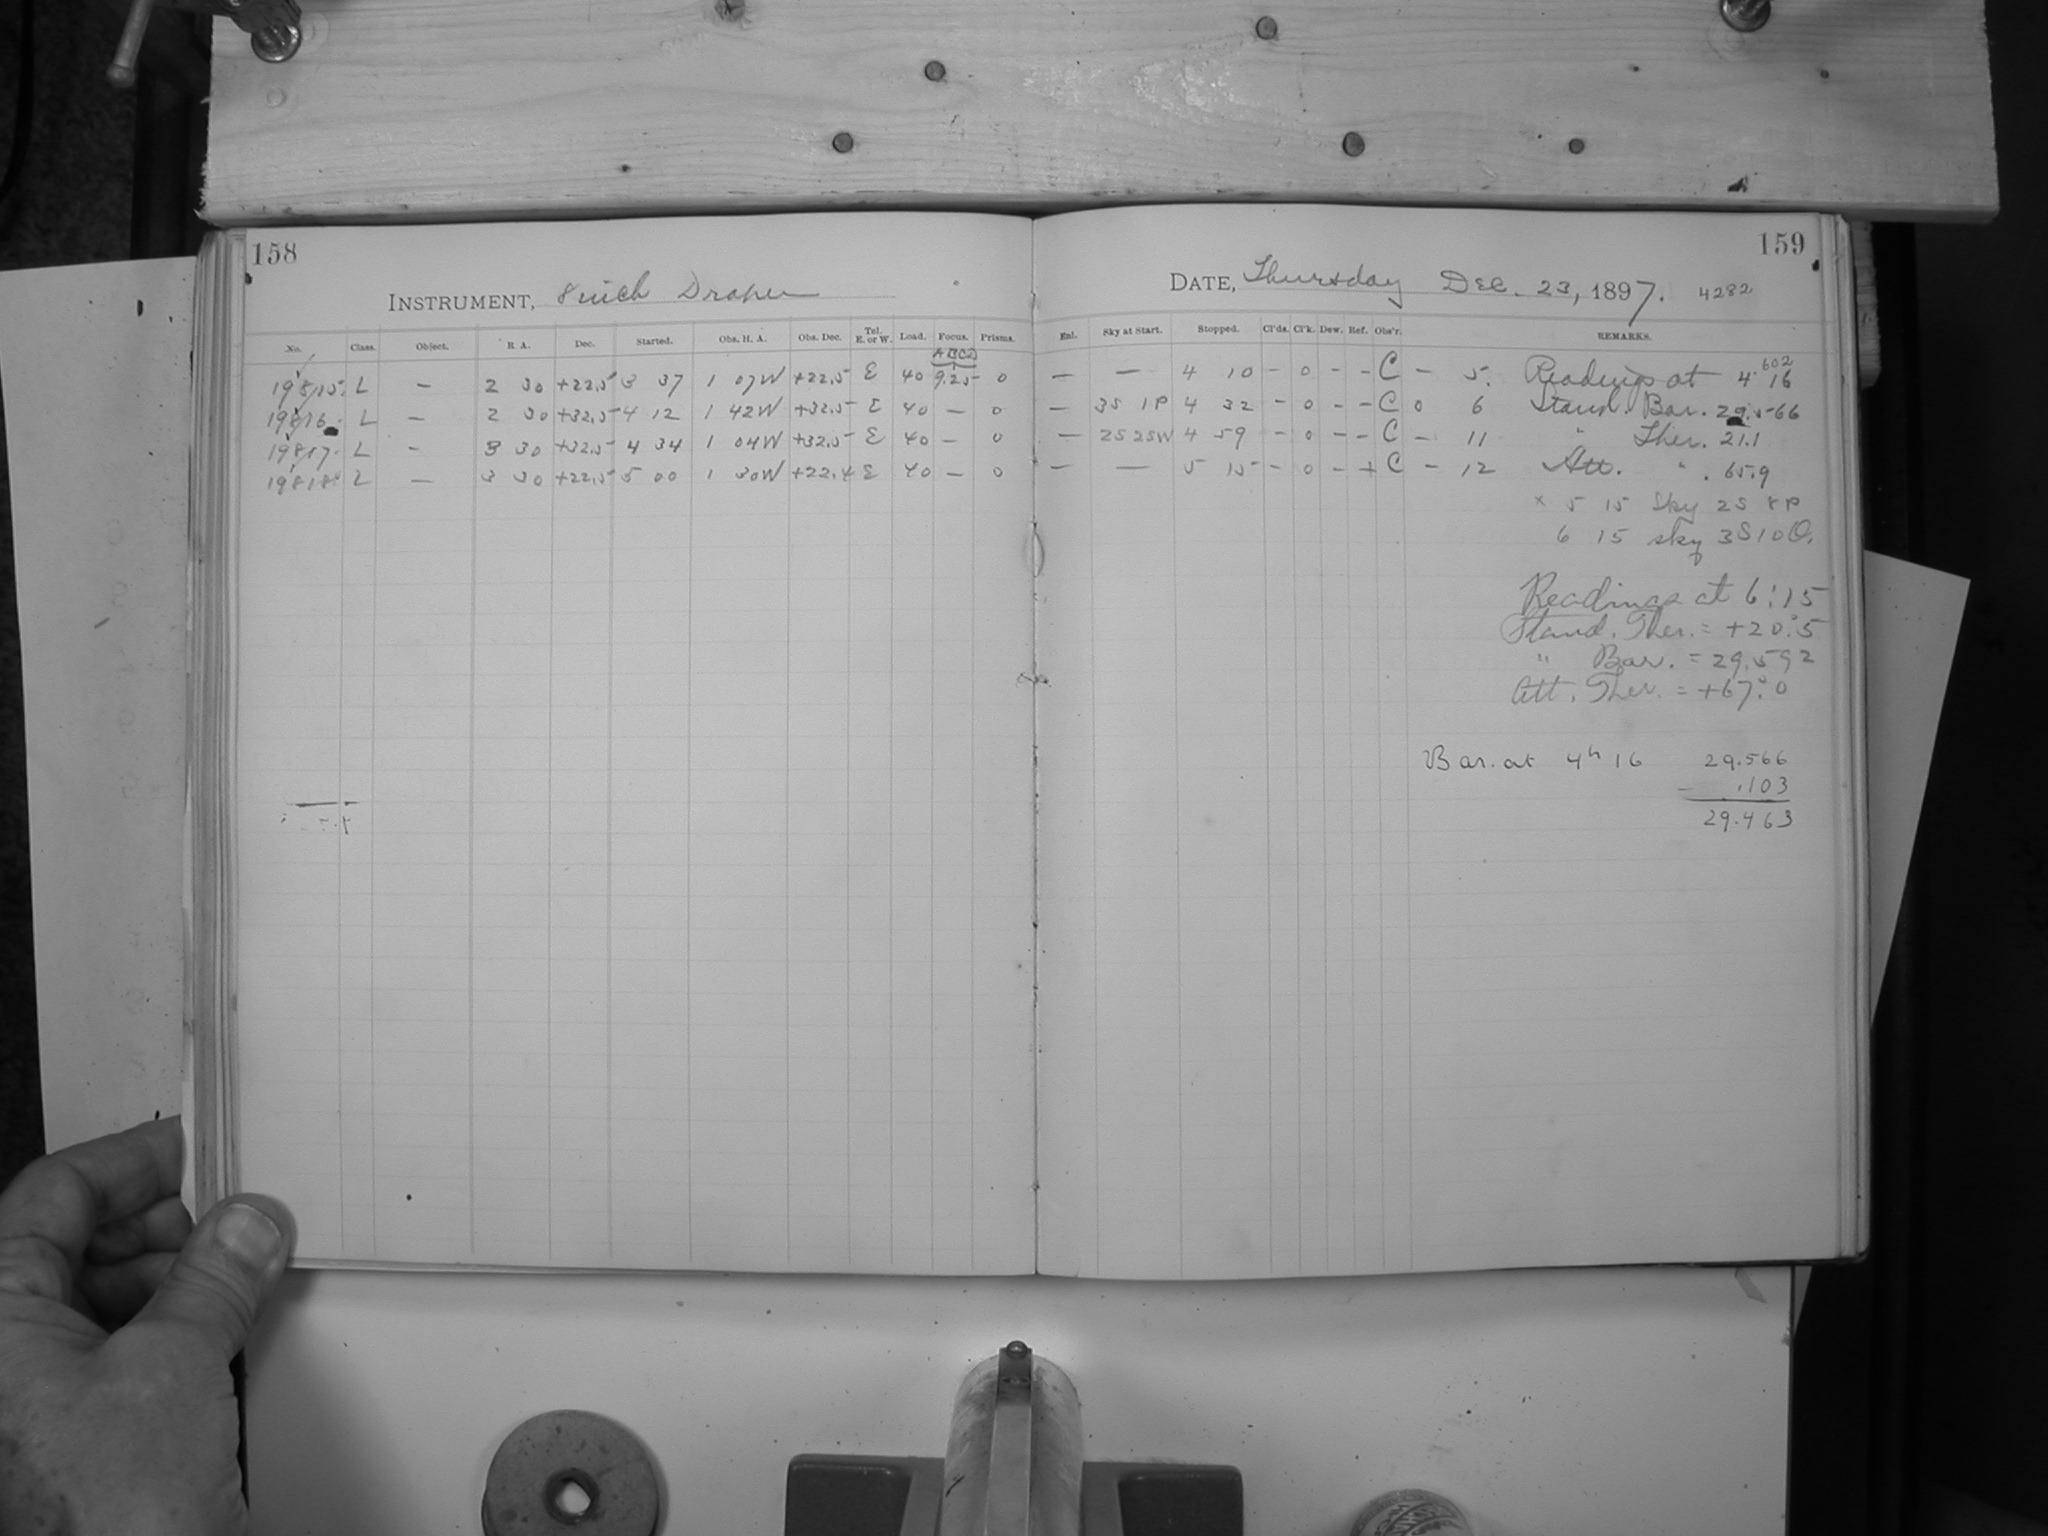 158
INSTRUMENT, 8 inch Draper
No. Class. Object. R. A. Dec. Started. Obs. H. A. Obs. Dec. Tel. E. or W. Load. Focus. Prisms.
ABCD
19815 L — 2 30 +22.5 3 37 1 07W +22.5 E 40 9.25 0
19816 L — 2 30 +32.5 4 12 1 42W +32.5 E 40 — 0
19817 L — 3 30 +32.5 4 34 1 04W +32.5 E 40 — 0
19818 L — 3 30 +22.5 5 00 1 30W +22.4 E 40 — 0
159
DATE, Thursday Dec. 23, 1897. 4282
Enl. Sky at Start. Stopped. Cl'ds. Cl'k. Dew. Ref. Obs'r. REMARKS.
602
— — 4 10 - 0 - - C - 5. Readings at 4 16
— 3S 1P 4 32 - 0 - - C 0 6 Stand. Bar. 29.566
— 2S 2SW 4 59 - 0 - - C - 11 " Ther. 21.1
— — 5 15 - 0 - + C - 12 Att. " . 65.9
x 5 15 Sky 2S 8P
6 15 sky 3S10O.
Readings at 6:15
Stand. Ther. = +20°.5
" Bar. = 29.592
Att. Ther. = +67°.0
Bar. at 4h 16 29.566
- .103
29.463